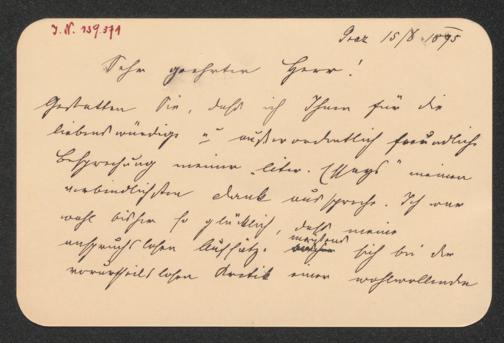 J. N. 139.571
Graz 15/8 1895
Sehr geehrter Herr!
Gestatten Sie, daß ich Ihnen für die
liebenswürdige u. außerordentlich freundliche
Besprechung meiner liter. Essays" meinen
verbindlichsten Dank ausspreche. Ich war
wohl bisher so glücklich, daß meine
anspruchslosen Aufsätze meistens sich bei der
vorurtheilslosen Kritik einer wohlwollenden